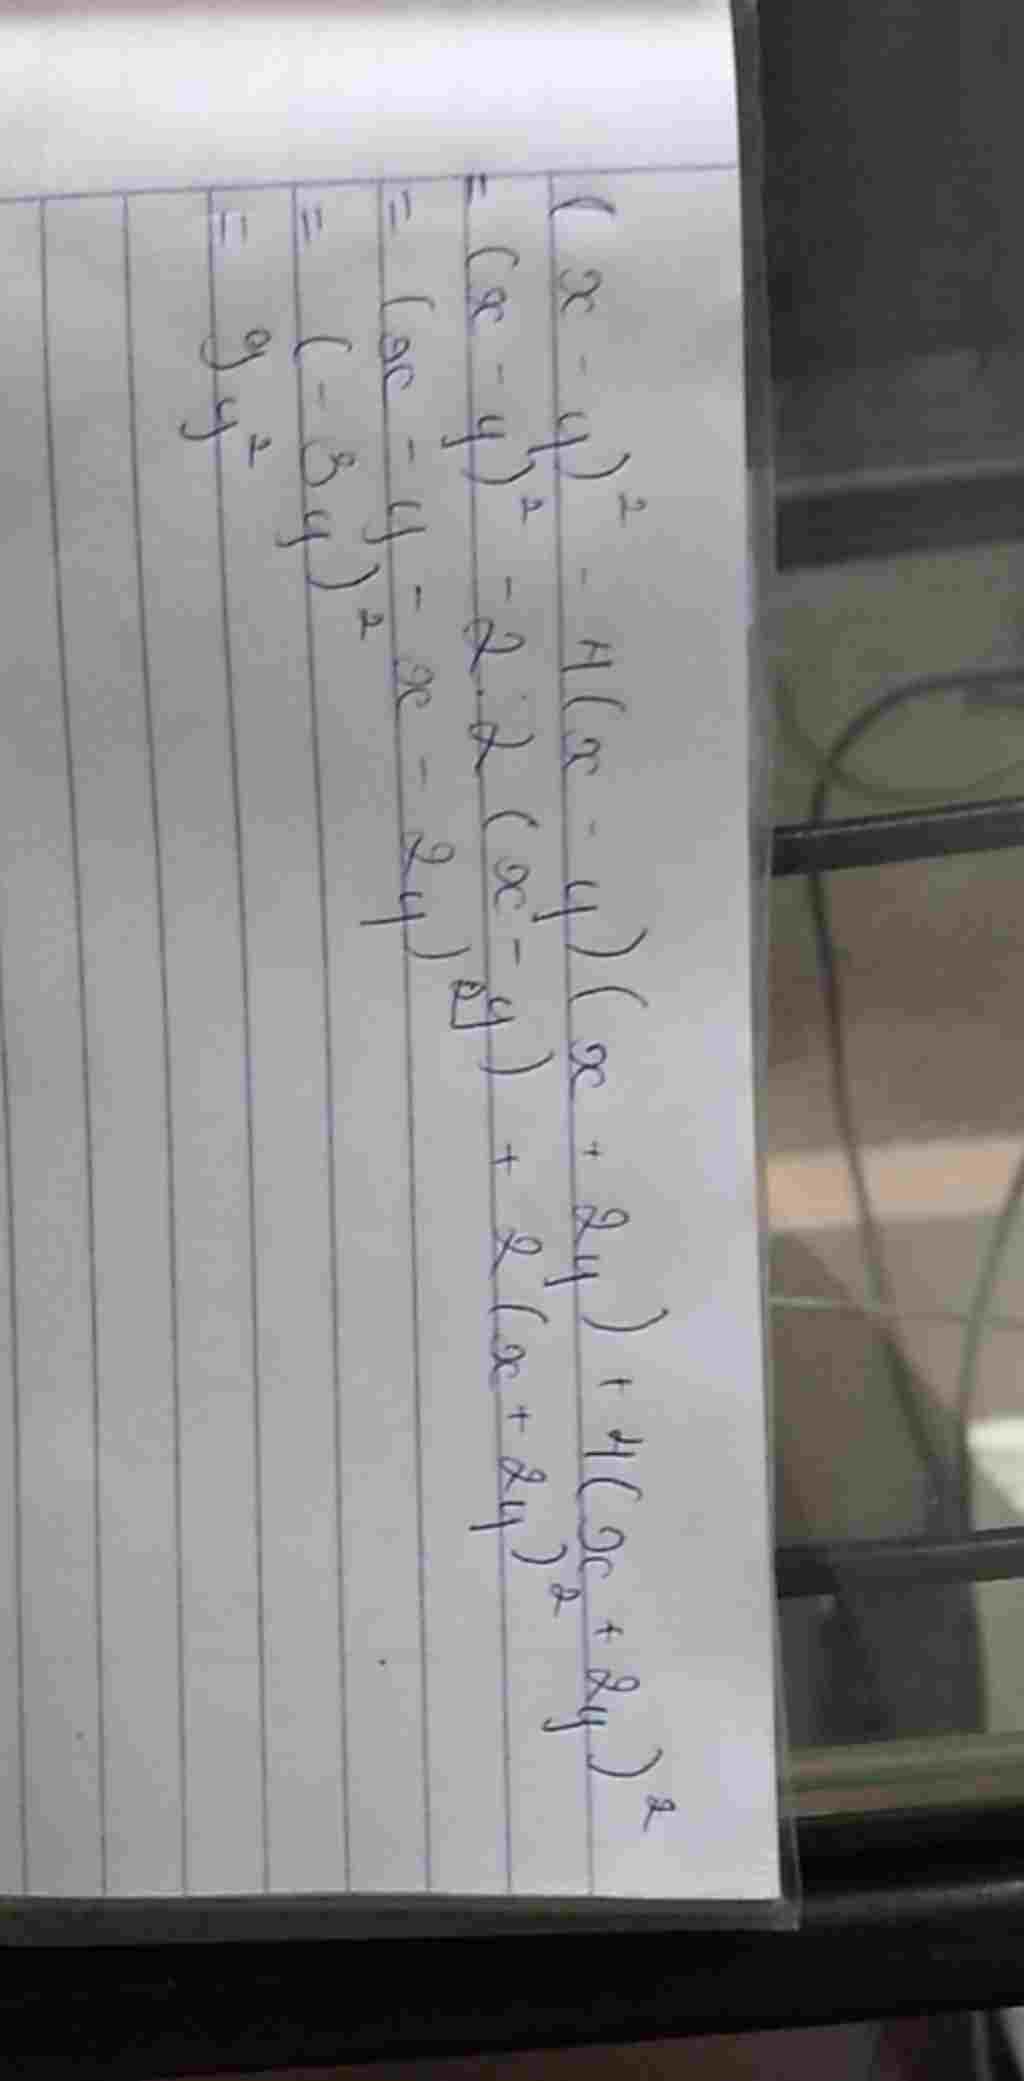 (x - y)² - 4(x - y)(x + 2y) + 4(x + 2y)²
= (x - y)² - 2.2(x - y) + 2(x + 2y)²
= (x - y - x - 2y)²
= (-3y)²
= 9y²